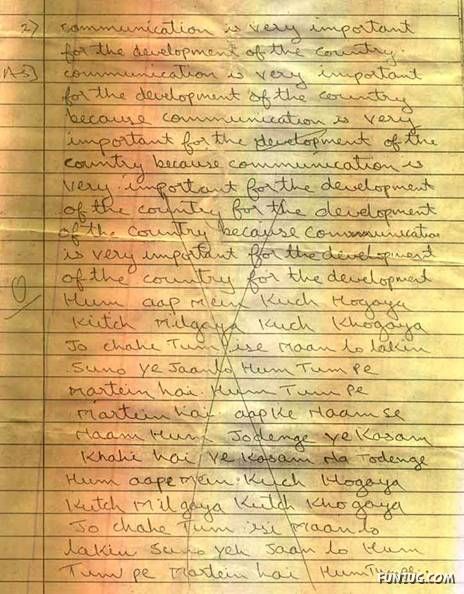 2) communication is very important
for the development of the country.
Ans] communication is very important
for the development of the country
because communication is very
important for the development of the
country because communication is
very important for the development
of the country for the development
of the country because communication
is very important for the development
of the country for the development
0 Hum aap mein Kuch Hogaya
Kutch Milgaya Kuch Khogaya
Jo chahe Tum ise Maan lo lakin
Suno ye Jaanlo Hum Tum pe
Martein hai Hum Tum Pe
Martein hai aap Ke Naam se
Naam Hum Jodenge ye Kasam
Khahi hai ye Kasam Na Todenge
Hum aape mein Kuch Hogaya
Kutch Milgaya Kutch Khogaya
Jo chahe Tum ise Maan lo
lakin Suno yeh Jaan lo Hum
Tum pe Martein hai Hum Tum Pe.
FUNZUG.COM